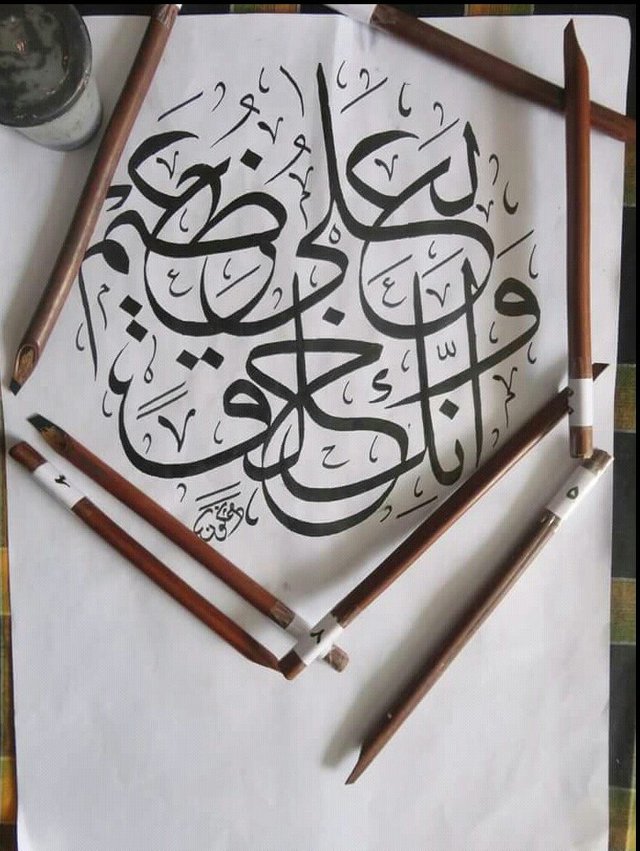 وَإِنَّكَ لَعَلَى خُلُقٍ عَظِيمٍ
٨
٥